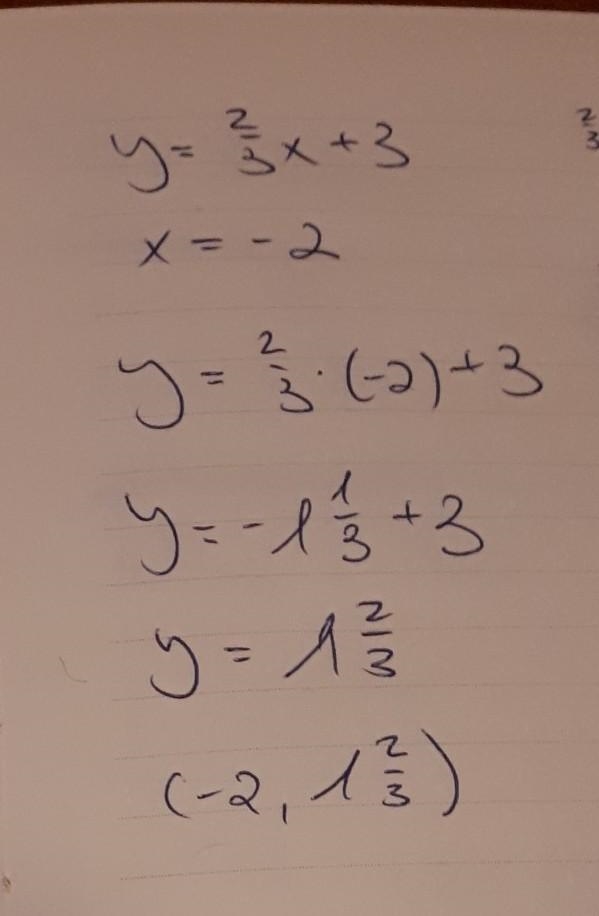 y = 2/3 x + 3
2/3
x = -2
y = 2/3 · (-2) + 3
y = -1 1/3 + 3
y = 1 2/3
(-2, 1 2/3)